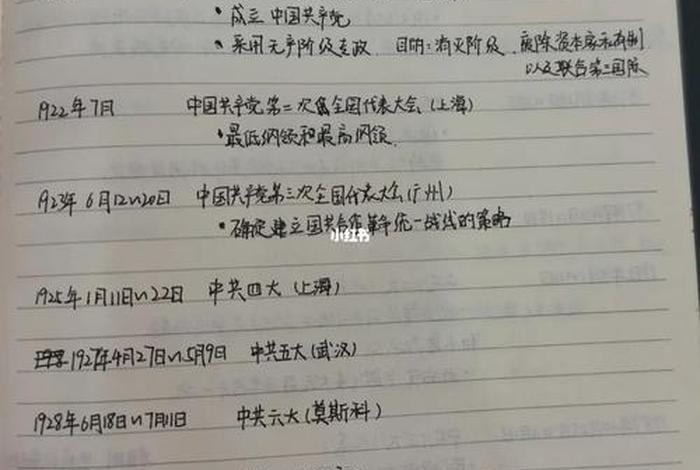 • 成立中国共产党
• 采用无产阶级专政 目的:消灭阶级、废除资本家私有制
以及联合第三国际
1922年7月 中国共产党第二次全国代表大会(上海)
• 最低纲领和最高纲领.
1923年6月12~20日 中国共产党第三次全国代表大会(广州)
• 确定建立国共合作革命统一战线的策略
小红书
1925年1月11日~22日 中共四大(上海)
1927年4月27日~5月9日 中共五大(武汉)
1928年6月18日~7月11日 中共六大(莫斯科)